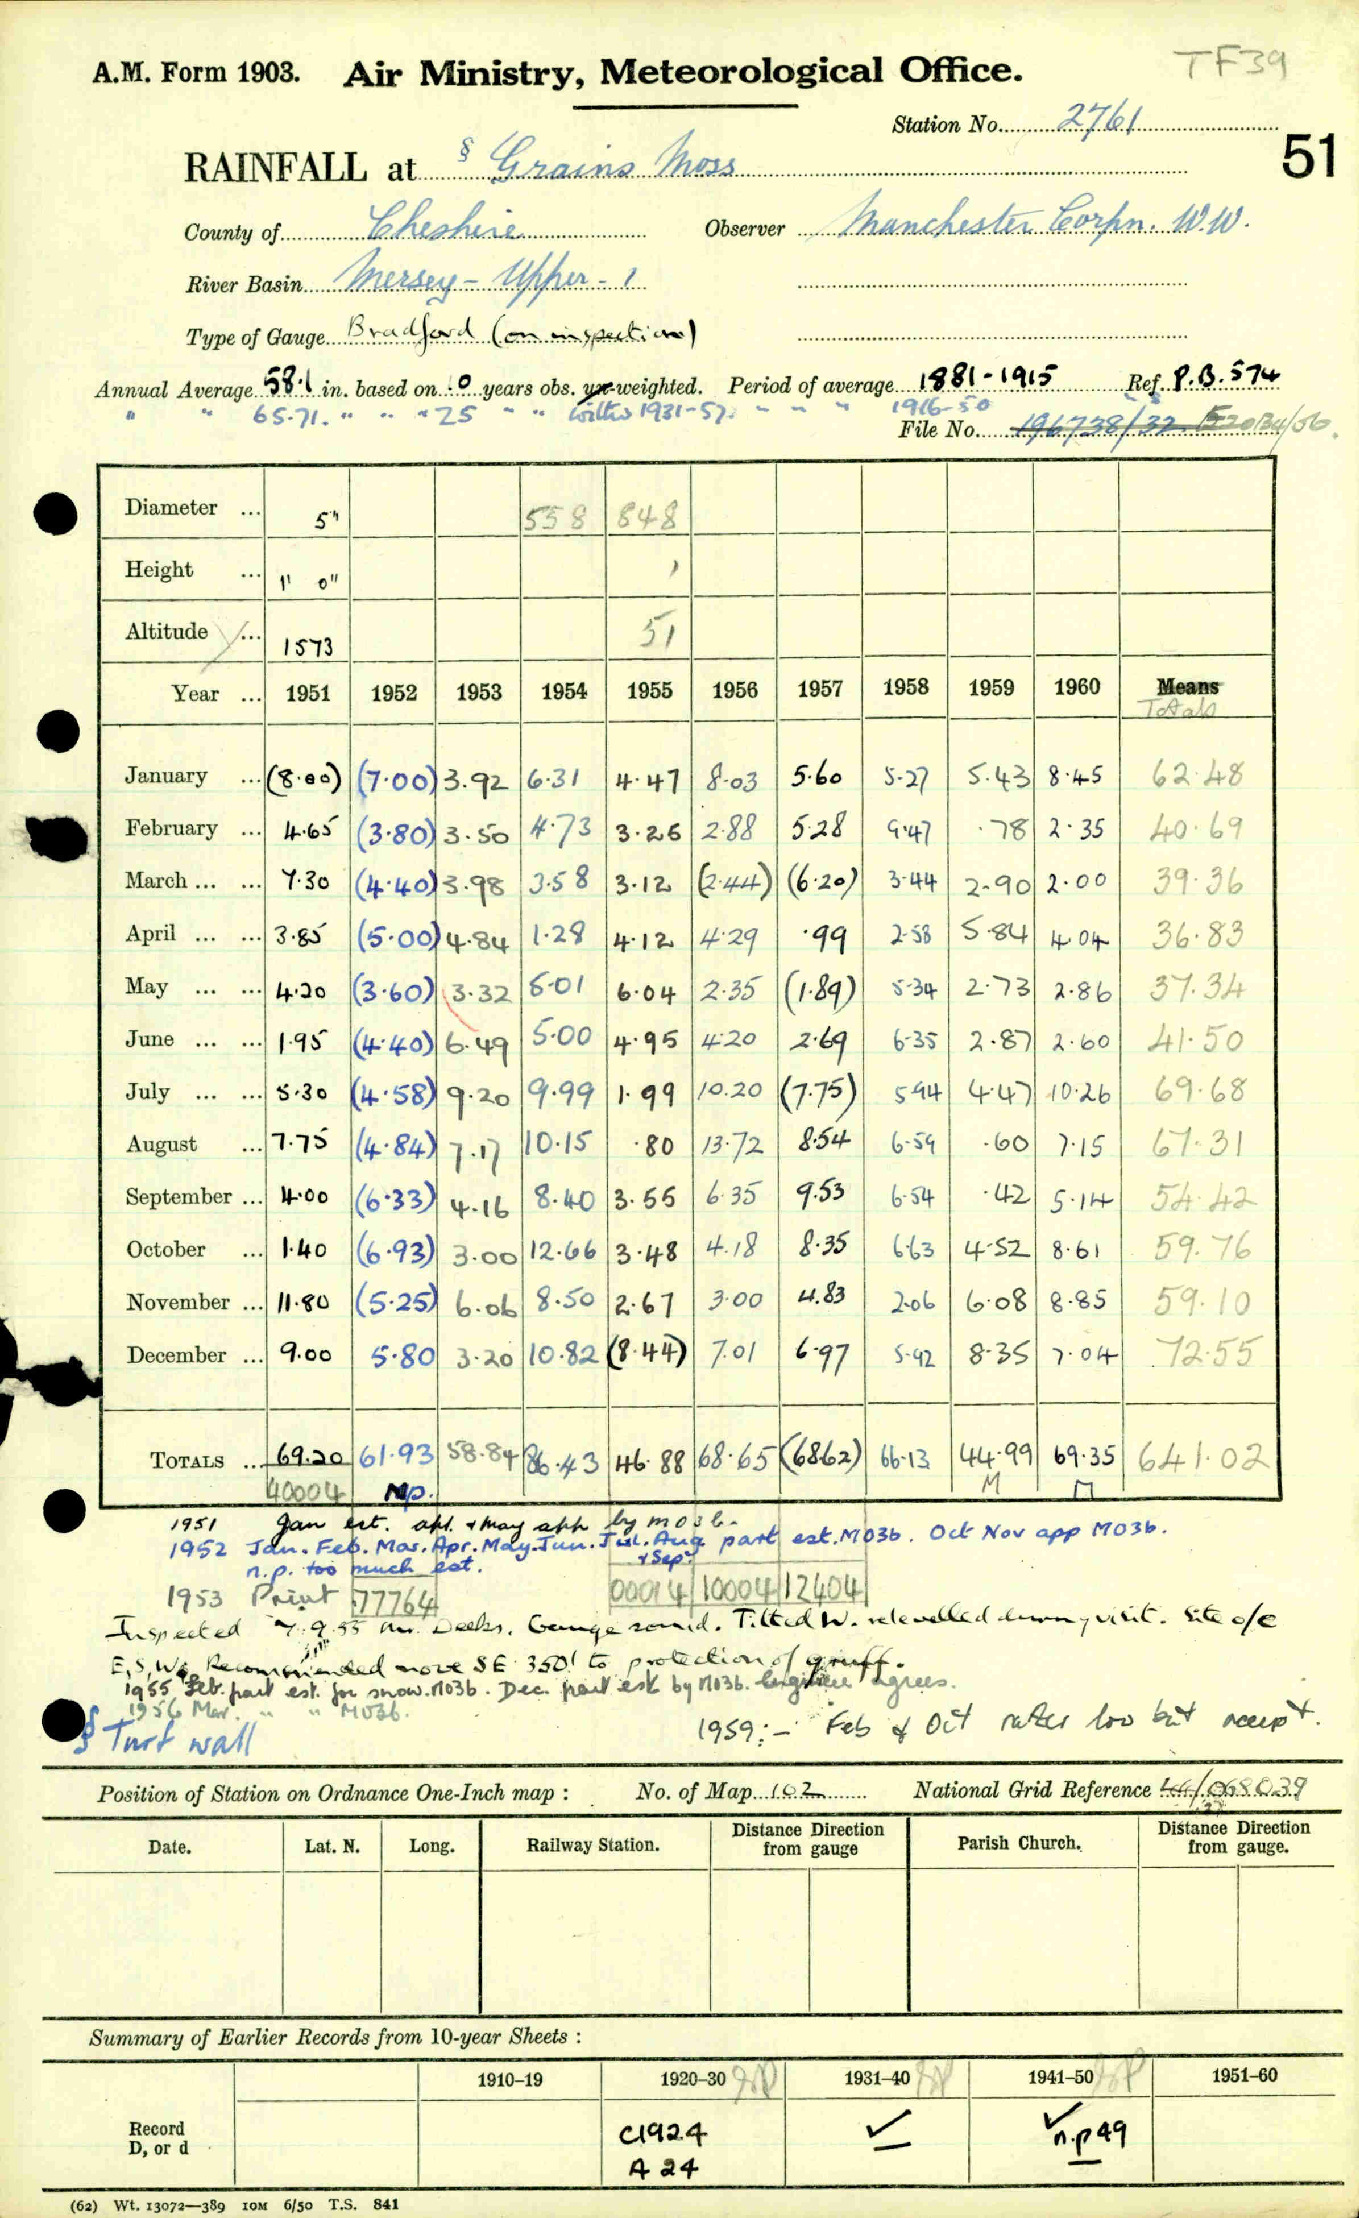 TF39
A.M. Form 1903. Air Ministry, Meteorological Office.
Station No. 2761
51
RAINFALL at § Grains Moss
County of Cheshire Observer Manchester Corpn. W.W.
River Basin Mersey - Upper - 1
Type of Gauge Bradford (on inspection)
Annual Average 58.1 in. based on 10 years obs. un-weighted. Period of average 1881-1915 Ref P.B. 574
" " 65.71. " " " 25 " " 1931-57. " " " 1916-50
File No. 196738/32
Diameter ... 5" 558 848
Height ... 1' 0"
Altitude ... 1573 51
Year ... 1951 1952 1953 1954 1955 1956 1957 1958 1959 1960 Means
Totals
January ... (8.00) (7.00) 3.92 6.31 4.47 8.03 5.60 5.27 5.43 8.45 62.48
February ... 4.65 (3.80) 3.50 4.73 3.25 2.88 5.28 9.47 .78 2.35 40.69
March ... ... 7.30 (4.40) 3.98 3.58 3.12 (2.44) (6.20) 3.44 2.90 2.00 39.36
April ... ... 3.85 (5.00) 4.84 1.28 4.12 4.29 .99 2.58 5.84 4.04 36.83
May ... ... 4.20 (3.60) 3.32 5.01 6.04 2.35 (1.89) 5.34 2.73 2.86 37.34
June ... ... 1.95 (4.40) 6.49 5.00 4.95 4.20 2.69 6.35 2.87 2.60 41.50
July ... ... 5.30 (4.58) 9.20 9.99 1.99 10.20 (7.75) 5.94 4.47 10.26 69.68
August ... 7.75 (4.84) 7.17 10.15 .80 13.72 8.54 6.59 .60 7.15 67.31
September ... 4.00 (6.33) 4.16 8.40 3.55 6.35 9.53 6.54 .42 5.14 54.42
October ... 1.40 (6.93) 3.00 12.66 3.48 4.18 8.35 6.63 4.52 8.61 59.76
November ... 11.80 (5.25) 6.06 8.50 2.67 3.00 4.83 2.06 6.08 8.85 59.10
December ... 9.00 5.80 3.20 10.82 (8.44) 7.01 6.97 5.92 8.35 7.04 72.55
TOTALS ... 69.20 61.93 58.84 86.43 46.88 68.65 (68.62) 66.13 44.99 69.35 641.02
40004 np. M
1951 Jan est. apl. + may app by MO3b.
1952 Jan. Feb. Mar. Apr. May. Jun. Jul. Aug part est. MO3b. Oct Nov app MO3b.
+ Sep
n.p. too much est.
1953 Print 77764 00014 10004 12404
Inspected 7.9.55 Mr. Deeks. Gauge sound. Tilted W. relevelled during visit. Site o/e
E, S, W. Recommended move SE 350' to protection of gruff.
1955 Feb. part est. for snow. MO3b. Dec. part est by MO3b. Engineer agrees.
1956 Mar. " " MO3b.
§ Turf wall
1959:- Feb & Oct rather low but accept.
Position of Station on Ordnance One-Inch map : No. of Map 102 National Grid Reference 44/068039
Date. Lat. N. Long. Railway Station. Distance Direction from gauge Parish Church. Distance Direction from gauge.
Summary of Earlier Records from 10-year Sheets :
1910-19 1920-30 1931-40 1941-50 1951-60
Record
D, or d
C1924 ✓ ✓
A 24 n.p 49
(62) Wt. 13072—389 10M 6/50 T.S. 841